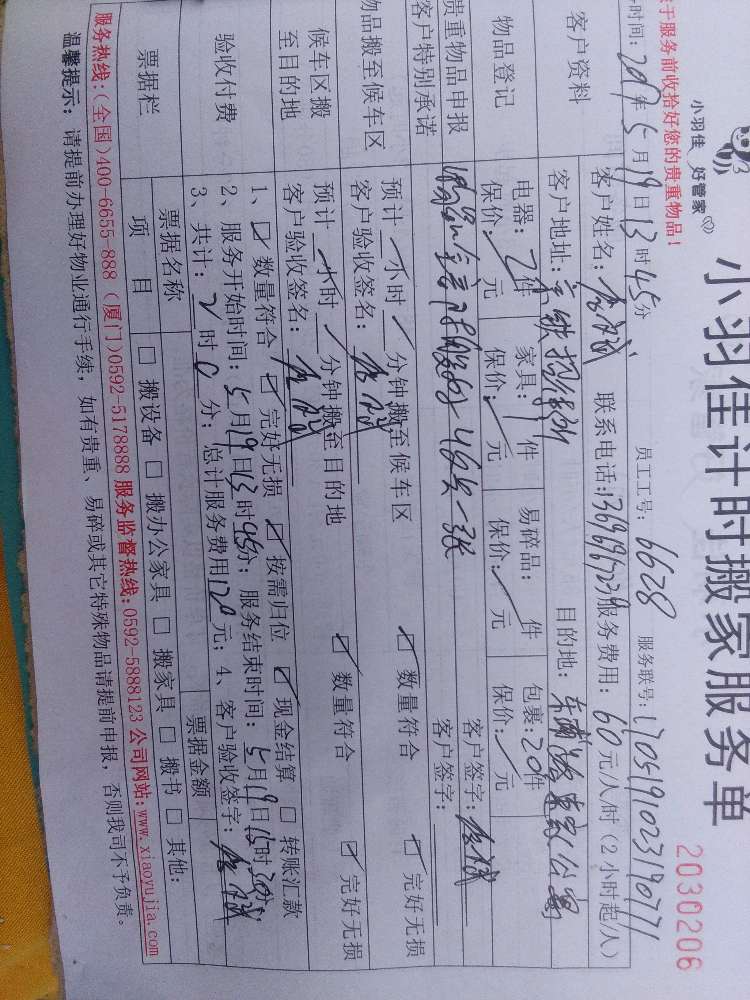 小羽佳 好管家
小羽佳计时搬家服务单
2030206
于服务前收拾好您的贵重物品!
时间: 2017年5月19日13时45分 员工工号: 6628 服务联号: 170519102319077
客户资料
客户姓名: 联系电话: 服务费用: 60元/人/时(2小时起/人)
客户地址: 目的地:
物品登记
电器: 2件 家具: 1件 易碎品: 件 包裹: 20件
保价: 元 保价: 元 保价: 元 保价: 元
贵重物品申报
客户特别承诺
客户签字:
客户签字:
物品搬至候车区
预计 小时 分钟搬至候车区 ☑ 数量符合 ☑ 完好无损
客户验收签名:
候车区搬
至目的地
预计 小时 分钟搬至目的地 ☑ 数量符合 ☑ 完好无损
客户验收签名:
验收付费
1、☑ 数量符合 ☑ 完好无损 ☑ 按需归位 ☑ 现金结算 □ 转账汇款
2、服务开始时间: 5月19日13时45分; 服务结束时间: 5月19日15时 分;
3、共计: 2时0分; 总计服务费用120元; 4、客户验收签字:
票据栏
票据名称 票据金额
项 目 □ 搬设备 □ 搬办公家具 □ 搬家具 □ 搬书 □ 其他:
服务热线:(全国)400-6655-888 (厦门)0592-5178888 服务监督热线:0592-5888123 公司网站:www.xiaoyujia.com
温馨提示: 请提前办理好物业通行手续, 如有贵重、易碎或其它特殊物品请提前申报, 否则我司不予负责。